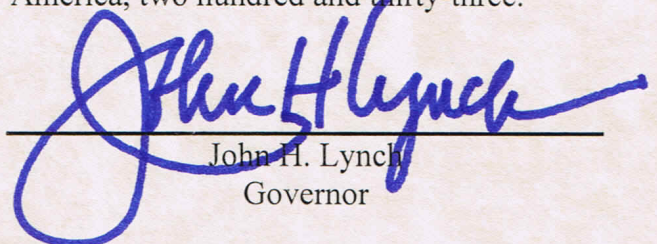 America, two hundred and thirty-three.
John H Lynch
John H. Lynch
Governor